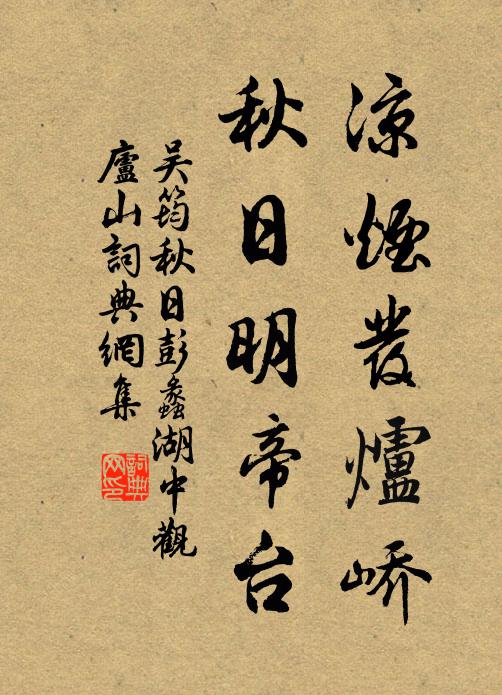 涼煙發爐嶠
秋日明帝台
吴筠秋日彭蠡湖中觀
廬山詞典網集
詞典网印